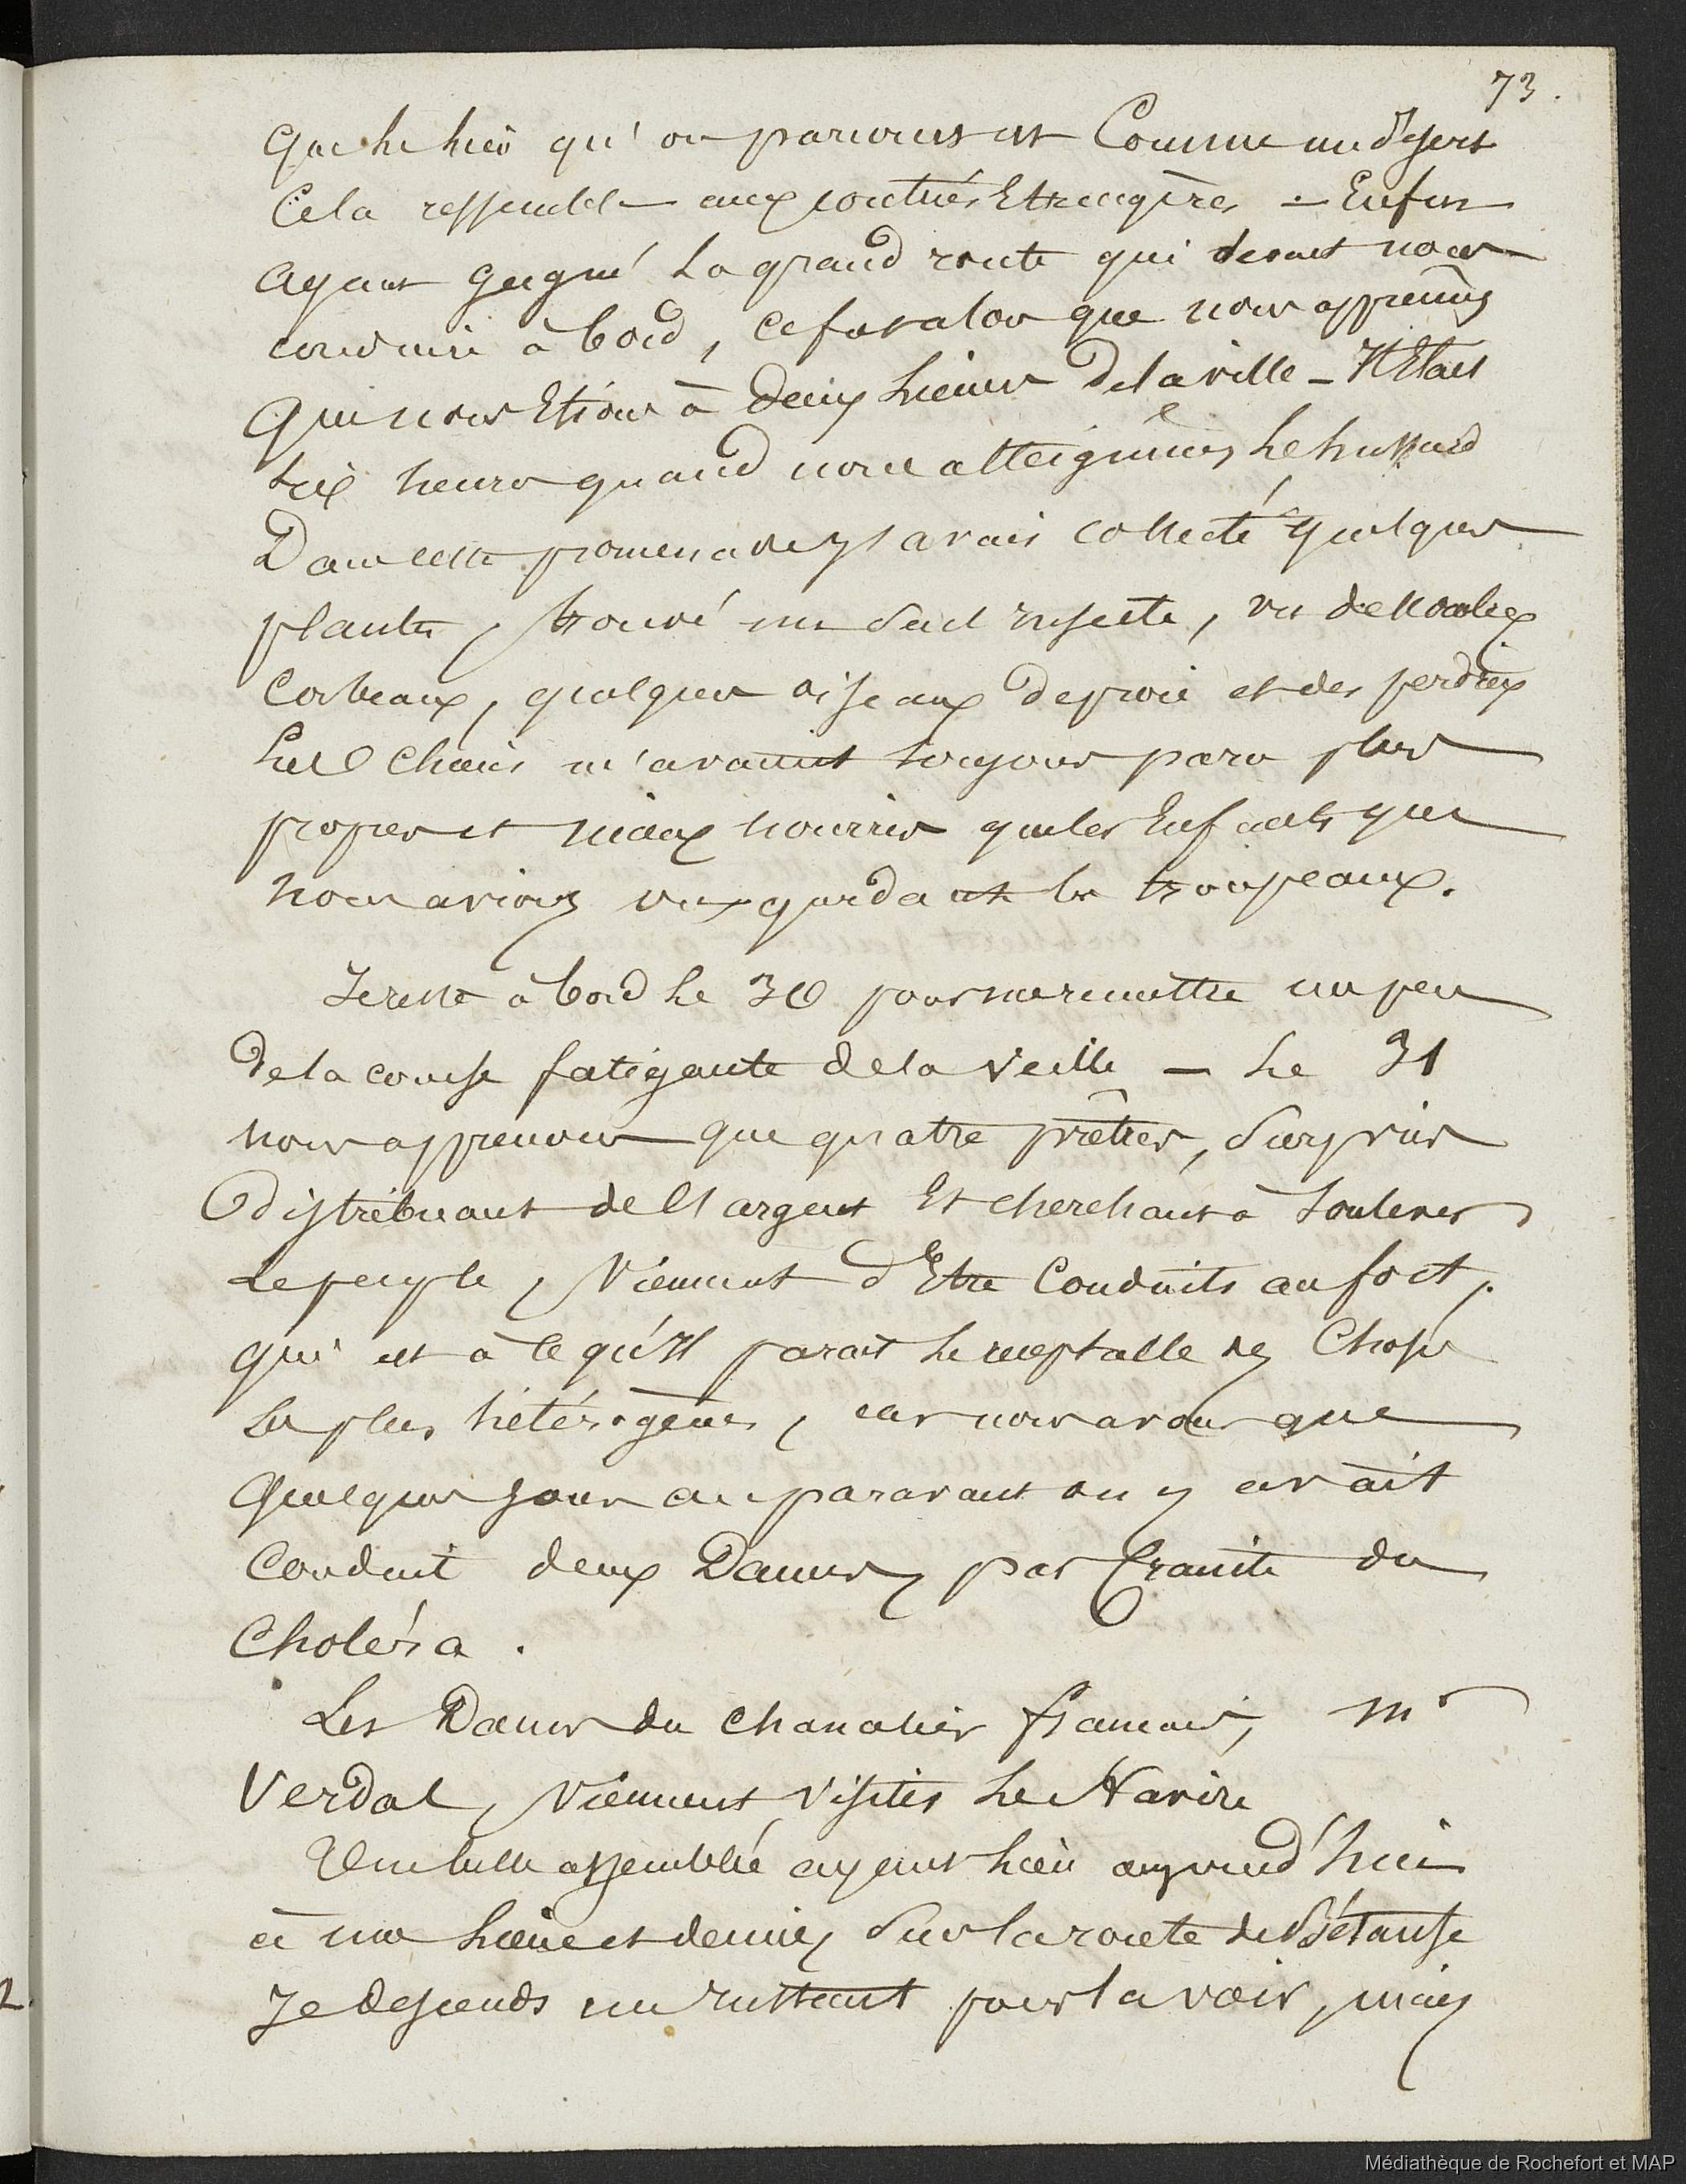 73.
que le lieu qu'on parcourt est comme un désert
Cela ressemble aux contrées Etrangères – Enfin
ayant gagné la grand route qui devait nous
conduire à bord, ce fut alors que nous apprîmes
que nous Etions à deux lieues de la ville – Il Etait
six heures quand nous atteignîmes le hussard
Dans cette promenade j'avais collecté quelques
plantes, trouvé un seul insecte, vu de nombreux
Corbeaux, quelques oiseaux de proie et des perdrix
Les Chiens m'avaient toujours paru plus
propres et mieux nourris que les Enfants que
nous avions vus gardant les troupeaux.
Je reste à bord le 30 pour me remettre un peu
de la course fatigante de la veille – Le 31
nous apprenons que quatre prêtres, surpris
distribuant de l'argent Et cherchant à soulever
le peuple, viennent d'Etre conduits au fort,
qui est à ce qu'Il parait le receptacle des Choses
les plus hétérogènes, car nous avons que
quelques jours auparavant on y avait
Conduit deux Dames, par crainte du
Choléra.
Les Dames du chancelier français, Mr
Verdal, viennent visiter le Navire
Une belle assemblée ayant lieu aujourd'hui
à une lieue et demie, sur la route de
Je descends un Instant pour la voir, mais
Médiathèque de Rochefort et MAP